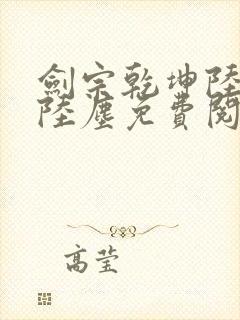 劍宗乾坤陸
陸塵免費閱
高莹